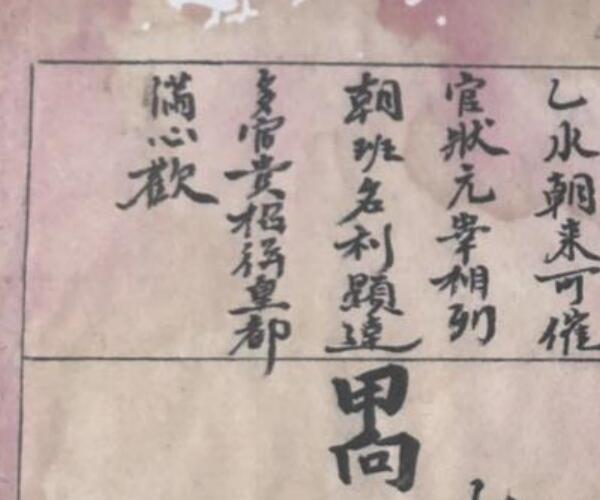 乙水朝来可催
官狀元宰相列
朝班名利顕達
多富貴招得皇都
滿心歡
甲向